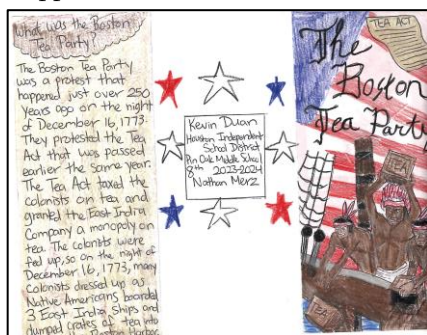 What was the Boston
Tea Party?
The Boston Tea Party
was a protest that
happened just over 250
years ago on the night
of December 16, 1773.
They protested the Tea
Act that was passed
earlier the same year.
The Tea Act taxed the
colonists on tea and
granted the East India
Company a monopoly on
tea. The colonists were
fed up, so on the night of
December 16, 1773, many
colonists dressed up as
Native Americans boarded
3 East India Ships and
dumped crates of tea into
the Boston Harbor
Kevin Duan
Houston Independent
School District
Pin Oak Middle School
8th 2023-2024
Nathan Merz
TEA ACT
The
Boston
Tea Party
TEA
TEA
TEA